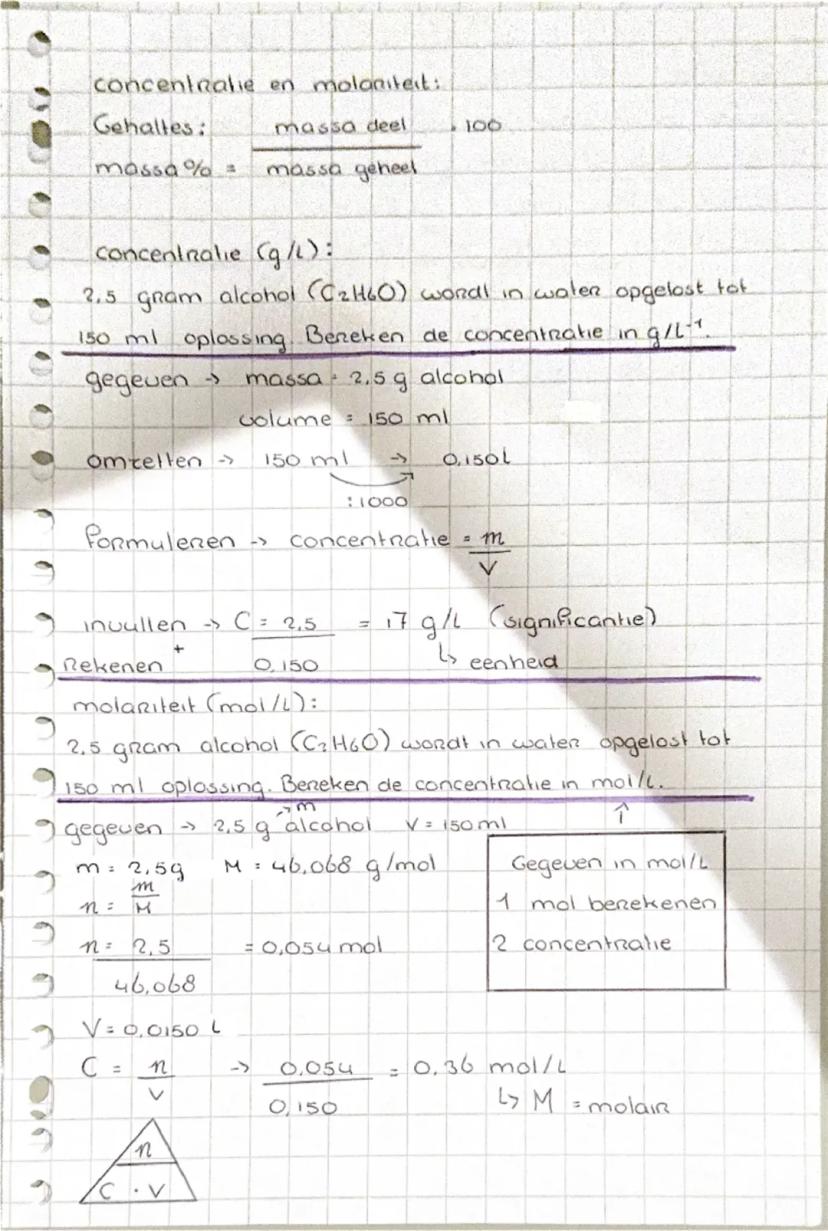 concentratie en molariteit:
Gehaltes: massa deel . 100
massa% = massa geheel
concentratie (g/L):
2,5 gram alcohol (C2H6O) wordt in water opgelost tot
150 ml oplossing. Bereken de concentratie in g/L-1.
gegeven -> massa = 2,5 g alcohol
volume = 150 ml
omzetten -> 150 ml -> 0,150l
:1000
formuleren -> concentratie = m
V
invullen -> C = 2,5 = 17 g/L (significantie)
+
Rekenen 0,150 ↳ eenheid
molariteit (mol/L):
2,5 gram alcohol (C2H6O) wordt in water opgelost tot
150 ml oplossing. Bereken de concentratie in mol/L.
->m ↑
gegeven -> 2,5 g alcohol V = 150 ml
m = 2,5g M = 46,068 g/mol Gegeven in mol/L
n = m
M 1 mol berekenen
n = 2,5 = 0,054 mol 2 concentratie
46,068
V = 0,0150 L
C = n -> 0,054 = 0,36 mol/L
V 0,150 ↳ M = molair
n
C . V